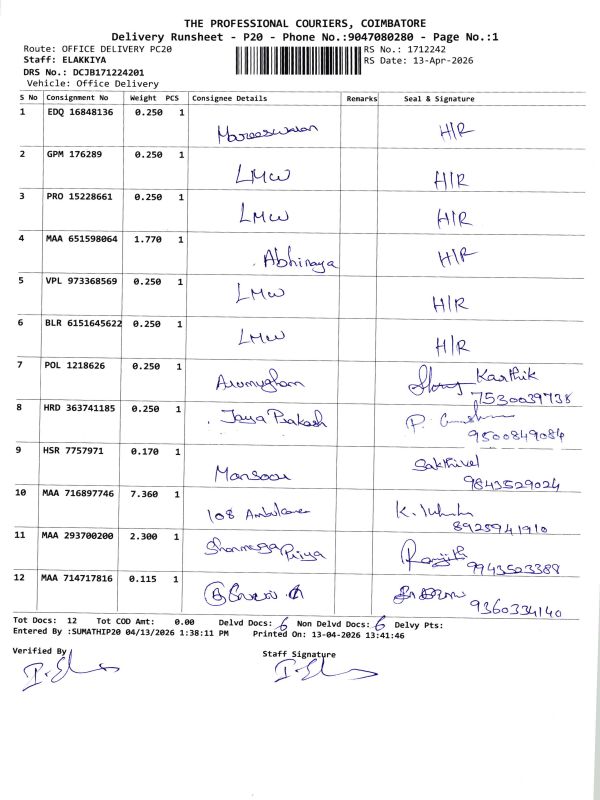 THE PROFESSIONAL COURIERS, COIMBATORE
Delivery Runsheet - P20 - Phone No.:9047080280 - Page No.:1
Route: OFFICE DELIVERY PC20
RS No.: 1712242
Staff: ELAKKIYA
RS Date: 13-Apr-2026
DRS No.: DCJB171224201
Vehicle: Office Delivery
S No Consignment No Weight PCS Consignee Details Remarks Seal & Signature
1 EDQ 16848136 0.250 1
Mareeswaran H/R
2 GPM 176289 0.250 1
LMW H/R
3 PRO 15228661 0.250 1
LMW H/R
4 MAA 651598064 1.770 1
Abhinaya H/R
5 VPL 973368569 0.250 1
LMW H/R
6 BLR 6151645622 0.250 1
LMW H/R
7 POL 1218626 0.250 1
Arumugham Karthik
7530039738
8 HRD 363741185 0.250 1
Jaya Prakash P.
9500849084
9 HSR 7757971 0.170 1
Mansoor Sakthivel
9843529024
10 MAA 716897746 7.360 1
108 Ambulance K.
8925941910
11 MAA 293700200 2.300 1
Shanmuga Priya Ranjith
9943503388
12 MAA 714717816 0.115 1
9360334140
Tot Docs: 12 Tot COD Amt: 0.00 Delvd Docs: 6 Non Delvd Docs: 6 Delvy Pts:
Entered By :SUMATHIP20 04/13/2026 1:38:11 PM Printed On: 13-04-2026 13:41:46
Verified By Staff Signature